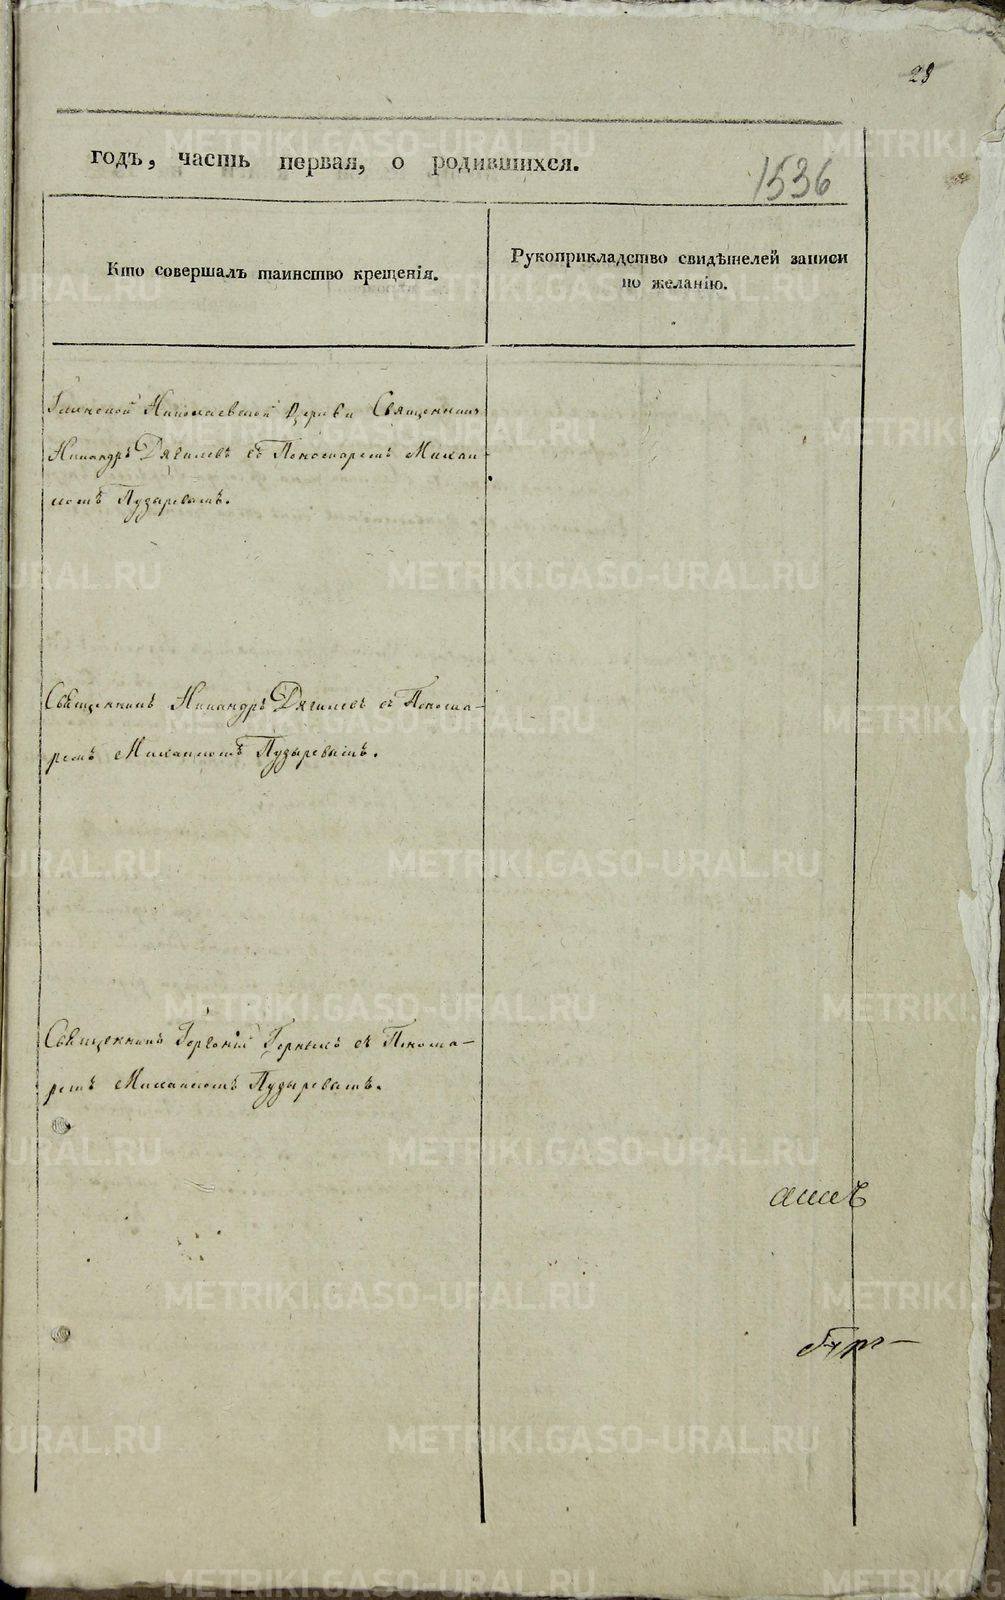 23
годъ, часть первая, о родившихся.
1536
Кто совершалъ таинство крещенія.
Рукоприкладство свидѣтелей записи
по желанію.
Николаевской Церкви Священникъ
Никандръ Дягилевъ съ Пономаремъ Михаи-
ломъ Пузыревымъ.
Священникъ Никандръ Дягилевъ съ Понома-
ремъ Михаиломъ Пузыревымъ.
Священникъ Горгоній Горныхъ съ Понома-
ремъ Михаиломъ Пузыревымъ.
METRIKI.GASO-URAL.RU